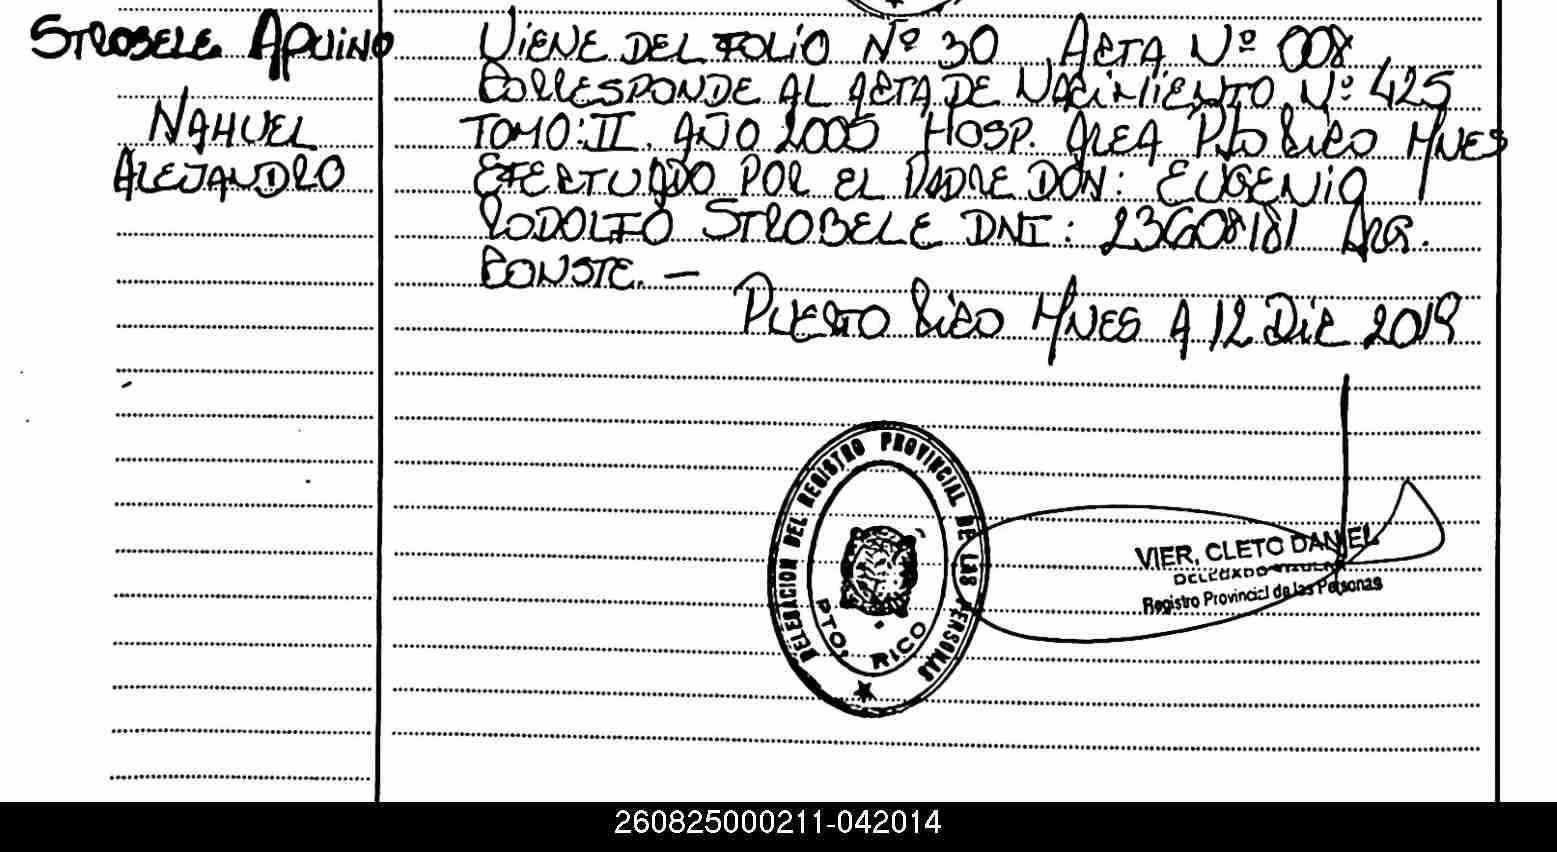 STROBELE APUINO
NAHUEL
ALEJANDRO
VIENE DEL FOLIO Nº 30 ACTA Nº 008
CORRESPONDE AL ACTA DE NACIMIENTO Nº 425
TOMO: II. AÑO 2005 HOSP. AREA PTO RICO MNES
EFECTUADO POR EL PADRE DON: EUGENIO
RODOLFO STROBELE DNI: 23608181 ARG.
CONSTE. —
PUERTO RICO MNES A 12 DIC 2019
DELEGACION DEL REGISTRO PROVINCIAL DE LAS PERSONAS
PTO. RICO
VIER, CLETO DANIEL
DELEGADO TITULAR
Registro Provincial de las Personas
260825000211-042014